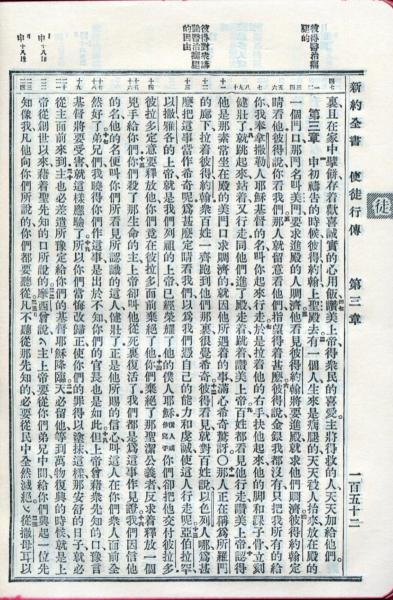 新約全書　使徒行傳　第三章　一百五十二
徒
彼得醫治瘸
腿的
裏且在家中擘餅存着歡喜誠實的心用飯讚美上帝得衆民的喜愛主將得救的人天天加給他們
第三章　申初禱告的時候彼得約翰上聖殿去有一個人生來是瘸腿的天天被人抬來放在殿的
一個門口那門名叫美門要求進殿的人賙濟他看見彼得約翰將要進殿就求他們賙濟彼得約翰定
睛看他彼得說你看我們那人就留意看他們指望得着甚麼彼得說金銀我都沒有只把我所有的給
你我奉拿撒勒人耶穌基督的名叫你起來行走於是拉着他的右手扶他起來他的脚和踝子骨立刻
健壯了就跳起來站着又行走同他們進了殿走着跳着讚美上帝百姓都看見他行走讚美上帝認得
他是那素常坐在殿的美門口求賙濟的就因他所遇着的事滿心希奇驚訝○那人正在稱爲所羅門
的廊下拉着彼得約翰衆百姓一齊跑到他們那裏很覺希奇彼得看見就對百姓說以色列人哪爲甚
麼把這事當作希奇呢爲甚麼定睛看我們以爲我們憑自己的能力和虔誠使這人行走呢亞伯拉罕
以撒雅各的上帝就是我們列祖的上帝已經榮耀了他的僕人耶穌你們却把他交付彼拉多
彼拉多定意要釋放他你們竟在彼拉多面前棄絕了他你們棄絕了那聖潔公義者反求着釋放一個
兇手給你們你們殺了那生命的主上帝却叫他從死裏復活了我們都是爲這事作見證我們因信他
的名他的名便叫你們所看見所認識的這人健壯了正是他所賜的信心叫這人在你們衆人面前全
然好了弟兄們我曉得你們作這事是出於不知你們的官長也是如此但上帝曾藉衆先知的口豫言
基督將要受害就這樣應驗了所以你們當悔改歸正使你們的罪得以塗抹這樣那安舒的日子就必
從主面前來到主也必差遣所豫定給你們的基督耶穌降臨天必留他等到萬物復興的時候就是上
帝從創世以來藉着聖先知的口所說的摩西曾說主上帝要從你們弟兄中間給你們興起一位先
知像我凡他向你們所說的你們都要聽從凡不聽從那先知的必要從民中全然滅絕從撒母耳以